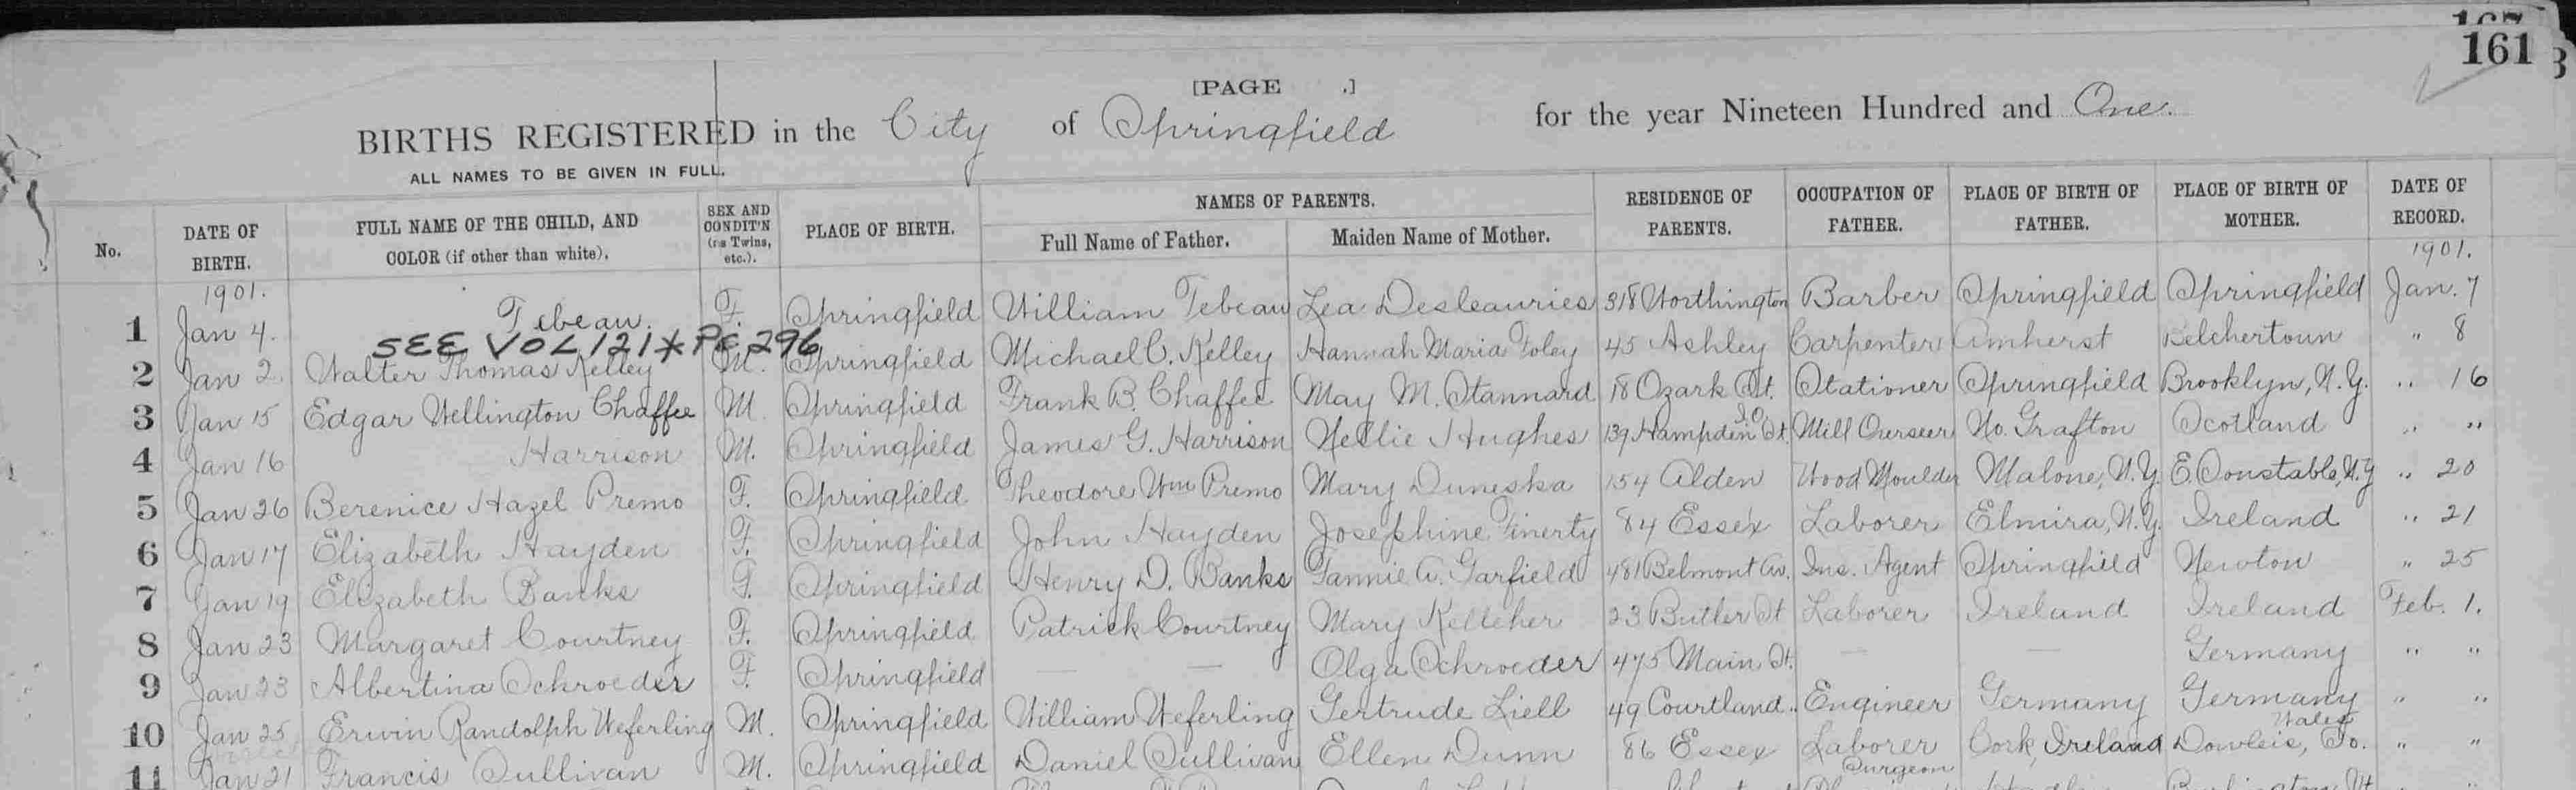 161
[PAGE .]
BIRTHS REGISTERED in the City of Springfield for the year Nineteen Hundred and One.
ALL NAMES TO BE GIVEN IN FULL.
No. DATE OF BIRTH. FULL NAME OF THE CHILD, AND COLOR (if other than white). SEX AND CONDIT'N (as Twins, etc.). PLACE OF BIRTH. NAMES OF PARENTS. Full Name of Father. Maiden Name of Mother. RESIDENCE OF PARENTS. OCCUPATION OF FATHER. PLACE OF BIRTH OF FATHER. PLACE OF BIRTH OF MOTHER. DATE OF RECORD.
1901. 1901.
1 Jan 4. Tebeau. F. Springfield William Tebeau Lea Desleauries 318 Worthington Barber Springfield Springfield Jan. 7
SEE VOL 121 * PG 296
2 Jan 2 Walter Thomas Kelley M. Springfield Michael C. Kelley Hannah Maria Foley 45 Ashley Carpenter Amherst Belchertown " 8
3 Jan 15 Edgar Wellington Chaffee M. Springfield Frank B. Chaffee May M. Stannard 18 Ozark St. Stationer Springfield Brooklyn, N.Y. " 16
4 Jan 16 Harrison M. Springfield James G. Harrison Nellie Hughes 139 Hampden St. Mill Overseer No. Grafton Scotland " "
5 Jan 26 Berenice Hazel Premo F. Springfield Theodore Wm Premo Mary Duneska 154 Alden Wood Moulder Malone, N.Y. E. Constable, N.Y " 20
6 Jan 17 Elizabeth Hayden F. Springfield John Hayden Josephine Finerty 84 Essex Laborer Elmira, N.Y. Ireland " 21
7 Jan 19 Elizabeth Banks F. Springfield Henry D. Banks Fannie A. Garfield 481 Belmont Av. Ins. Agent Springfield Newton " 25
8 Jan 23 Margaret Courtney F. Springfield Patrick Courtney Mary Kelleher 23 Butler St Laborer Ireland Ireland Feb. 1.
9 Jan 23 Albertina Schroeder F. Springfield — — Olga Schroeder 475 Main St. — — Germany " "
10 Jan 25 Erwin Randolph Weferling M. Springfield William Weferling Gertrude Liell 49 Courtland " Engineer Germany Germany " "
11 Jan 21 Francis Sullivan M. Springfield Daniel Sullivan Ellen Dunn 86 Essex Laborer Cork, Ireland Dowleis, So. Wales " "
Surgeon